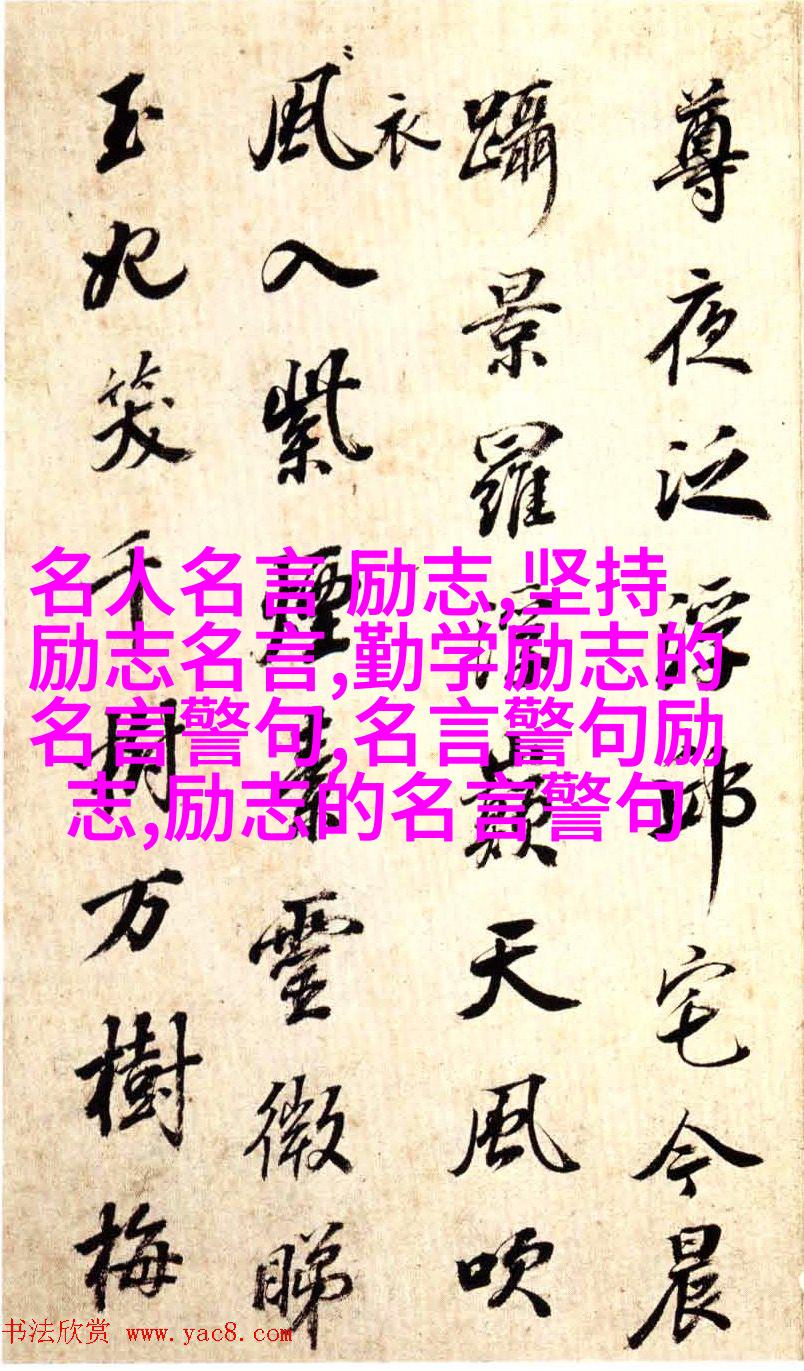 尊夜泛浮邱宅今晨
躡景羅浮巔天風吹
衣
風入紫煙素靈微睇
玉妃笑千樹万樹梅
名人名言 励志,坚持
励志名言,勤学励志的
名言警句,名言警句励
志,励志的名言警句
书法欣赏 www.yac8.com